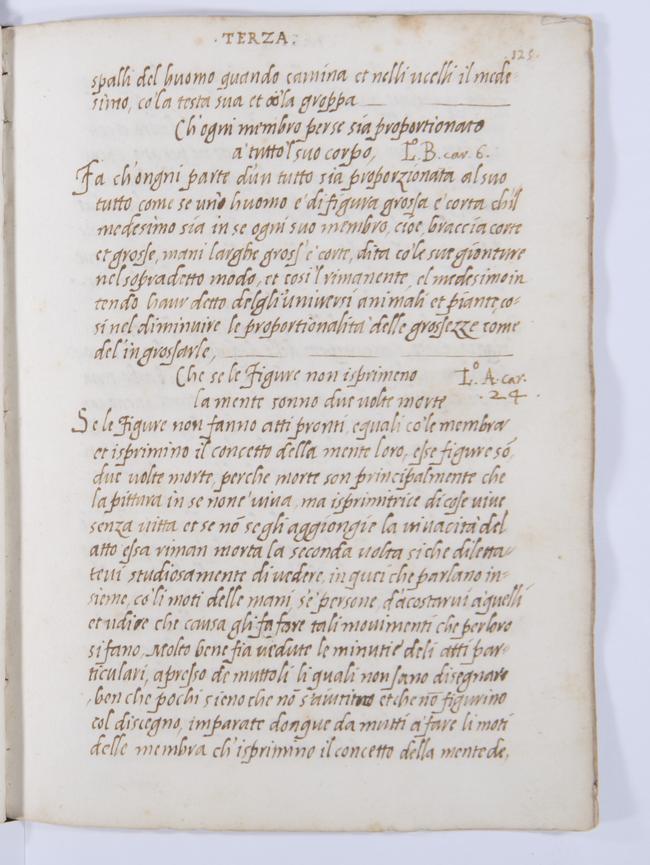 ·TERZA·
125·
spalli del huomo quando camina et nelli ucelli il mede-
simo, cō la testa sua et cō la groppa
Ch'ogni membro per se sia proportionato
a tutto'l suo corpo, L.B. car. 6.
Fa ch'ongni parte d'un tutto sia proporzionata al suo
tutto come se uno huomo è di figura grossa e corta ch'il
medesimo sia in se ogni suo membro, cioe, braccia corte
et grosse, mani larghe gross' e corte, dita cō le sue gionture
nel sopradetto modo, et cosi'l rimanente, el medesimo in
tendo haver detto delgli universi animali et piante, co-
si nel diminuire le proportionalita delle grossezze come
del ingrossarle,
Che se le Figure non isprimeno Lº. A. car.
la mente sonno due volte morte ·24·
Se le Figure non fanno atti pronti, e quali cō le membra
et isprimino il concetto della mente loro, esse figure sō,
due volte morte, perche morte son principalmente che
la pittura in se non e' viva, ma isprimitrice di cose vive
senza vitta et se nō se gli aggiongie la vivacità del
atto essa riman morta la seconda volta si che diletta-
tevi studiosamente di vedere, in quei che parlano in-
sieme, cō li moti delle mani, se' persone, d'acostarvi a quelli
et udire che causa gli fa fare tali movimenti che per loro
si fano, Molto bene fia vedute le minutie deli atti par-
ticulari, apresso de muttoli li quali non sano disegnare
ben che pochi sieno che nō s'aiutino et che nō figurino
col disegno, imparate donque da mutti a' fare li moti
delle membra ch'isprimino il concetto della mente de,